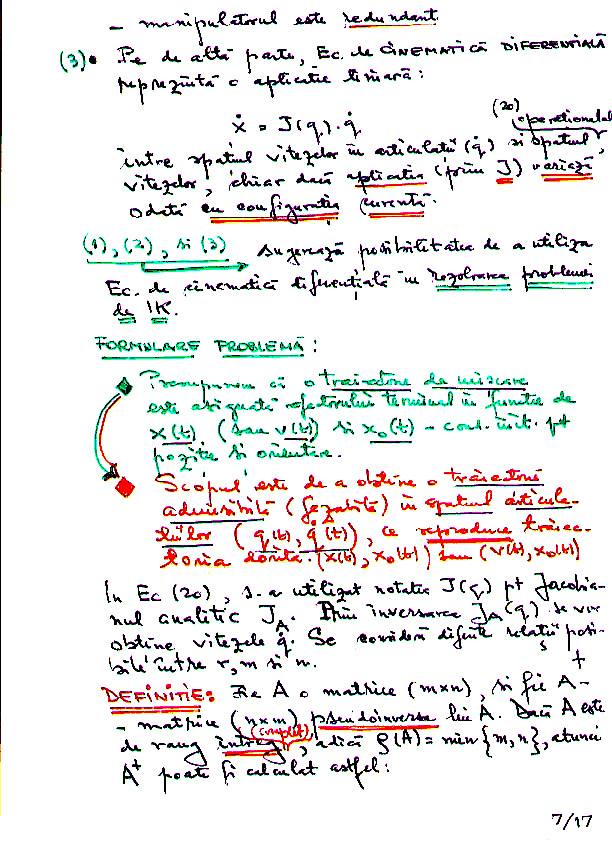 - manipulatorul este redundant
(3) • Pe de altă parte, Ec. de CINEMATICĂ DIFERENȚIALĂ
reprezintă o aplicație liniară:
ẋ = J(q)·q̇ (20)
între spațiul vitezelor în articulații (q̇) și spațiul operațional
vitezelor, chiar dacă aplicația (prin J) variază
odată cu configurația curentă.
(1), (2), și (3) sugerează posibilitatea de a utiliza
Ec. de cinematică diferențială în rezolvarea problemei
de IK.
FORMULARE PROBLEMĂ:
Presupunem că o traiectorie de mișcare
este asignată efectorului terminal în funcție de
x(t) (sau v(t)) și x₀(t) - cond. init. pt
poziție și orientare.
Scopul este de a obține o traiectorie
admisibilă (fezabilă) în spațiul articula-
țiilor (q(t), q̇(t)), ce reproduce traiec-
toria dorită. (x(t), x₀(t)) sau (v(t), x₀(t))
In Ec (20), s-a utilizat notația J(q) pt Jacobia-
nul analitic J_A. Prin inversarea J_A(q) se vor
obține vitezele q̇. Se consideră diferite relații posi-
bile între r, m și n.
DEFINIȚIE: Fie A o matrice (m×n), și fie A⁺
- matrice (n×m), pseudoinversa lui A. Dacă A este
de rang întreg (complet), adică ρ(A) = min{m,n}, atunci
A⁺ poate fi calculat astfel:
7/17